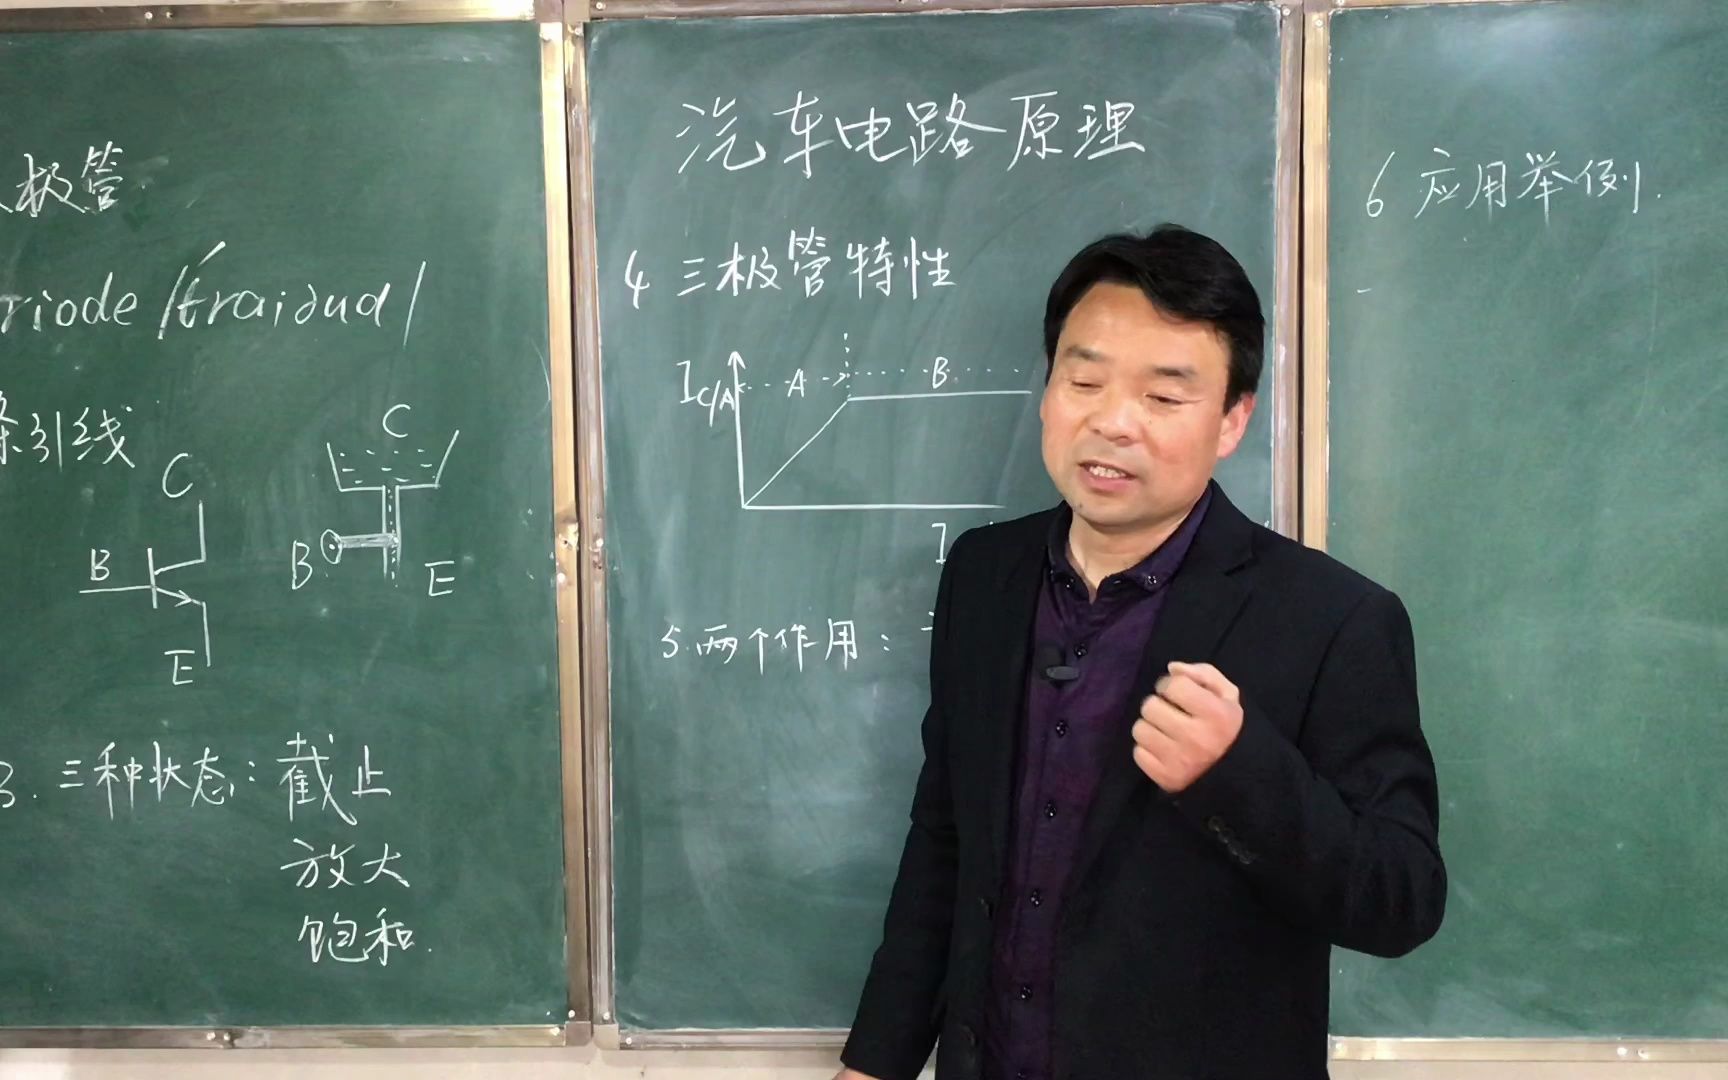 极管
riode /traiəud/
条引线
C
B
E
C
B
E
3. 三种状态: 截止
放大
饱和.
汽车电路原理
4 三极管特性
IC/A
A
B
I
5. 两个作用:
6 应用举例.